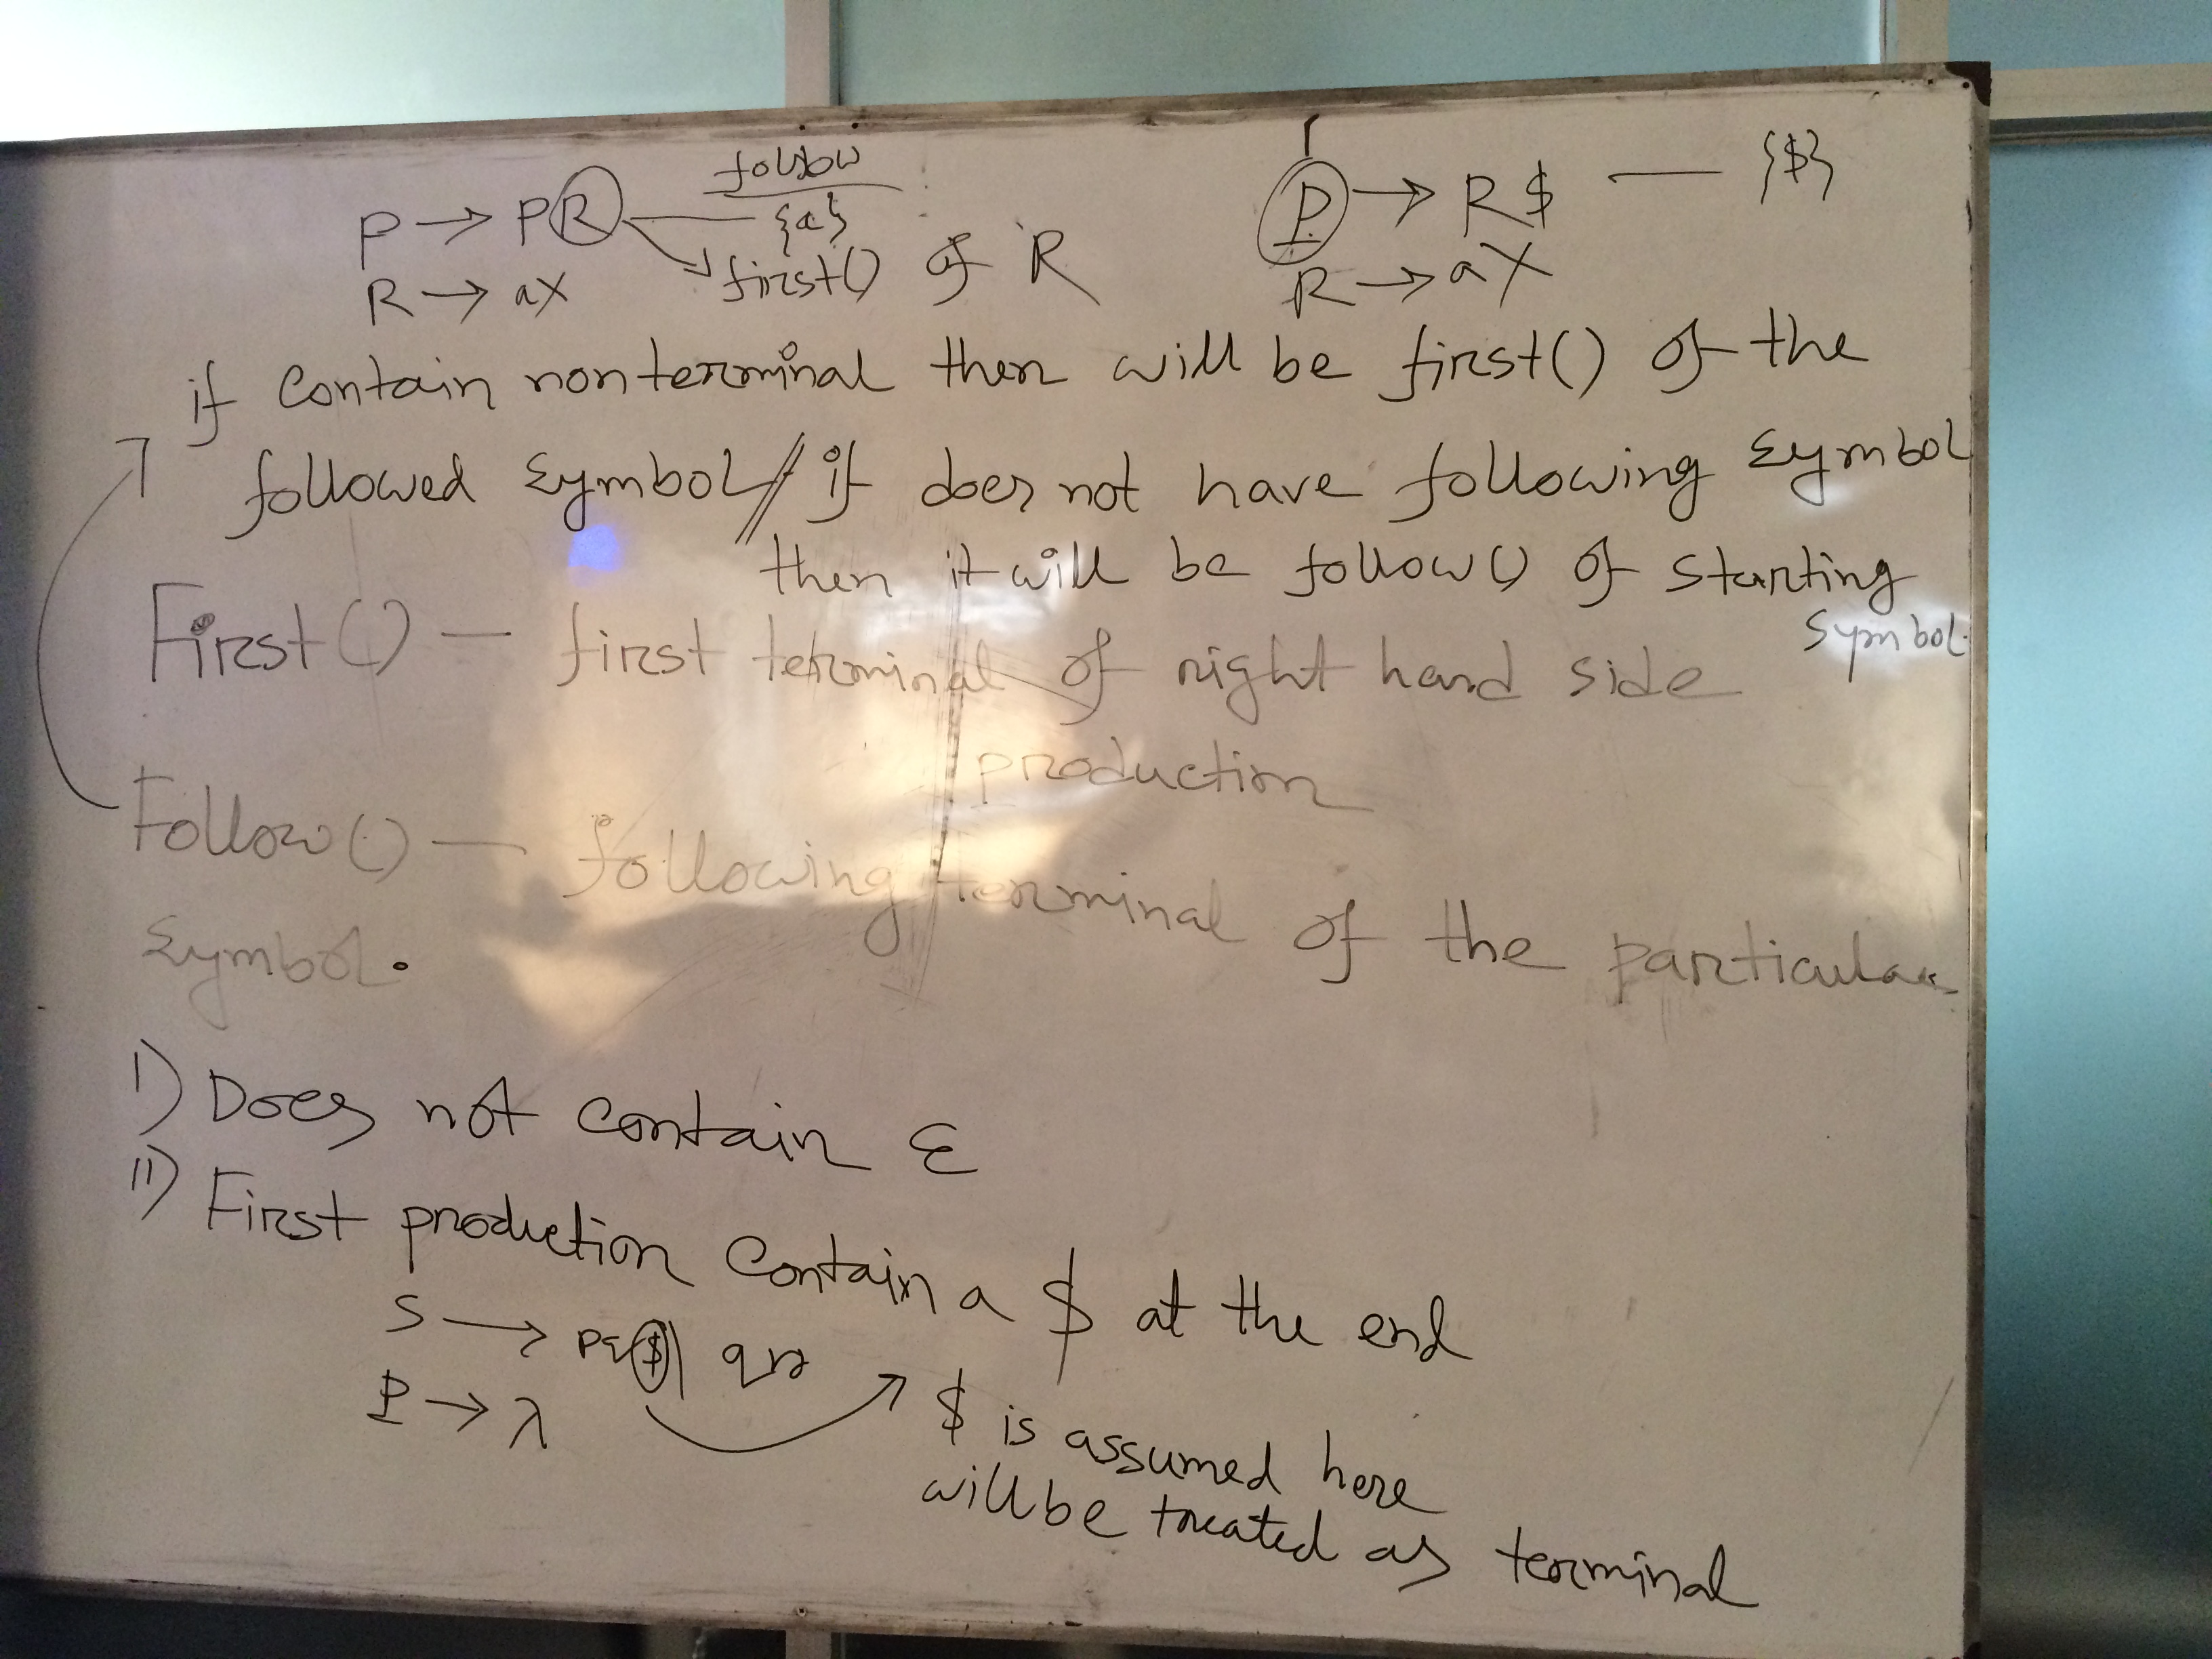 follow
P → PR — {a}
→ first() of R
R → aX
P → R$ — {$}
R → aX
if contain nonterminal then will be first() of the
followed symbol // if does not have following symbol
then it will be follow() of starting
symbol.
First() — first terminal of right hand side
production
Follow() — following terminal of the particular
symbol.
I) Does not contain ε
II) First production contain a $ at the end
S → $ |
P → λ
$ is assumed here
will be treated as terminal